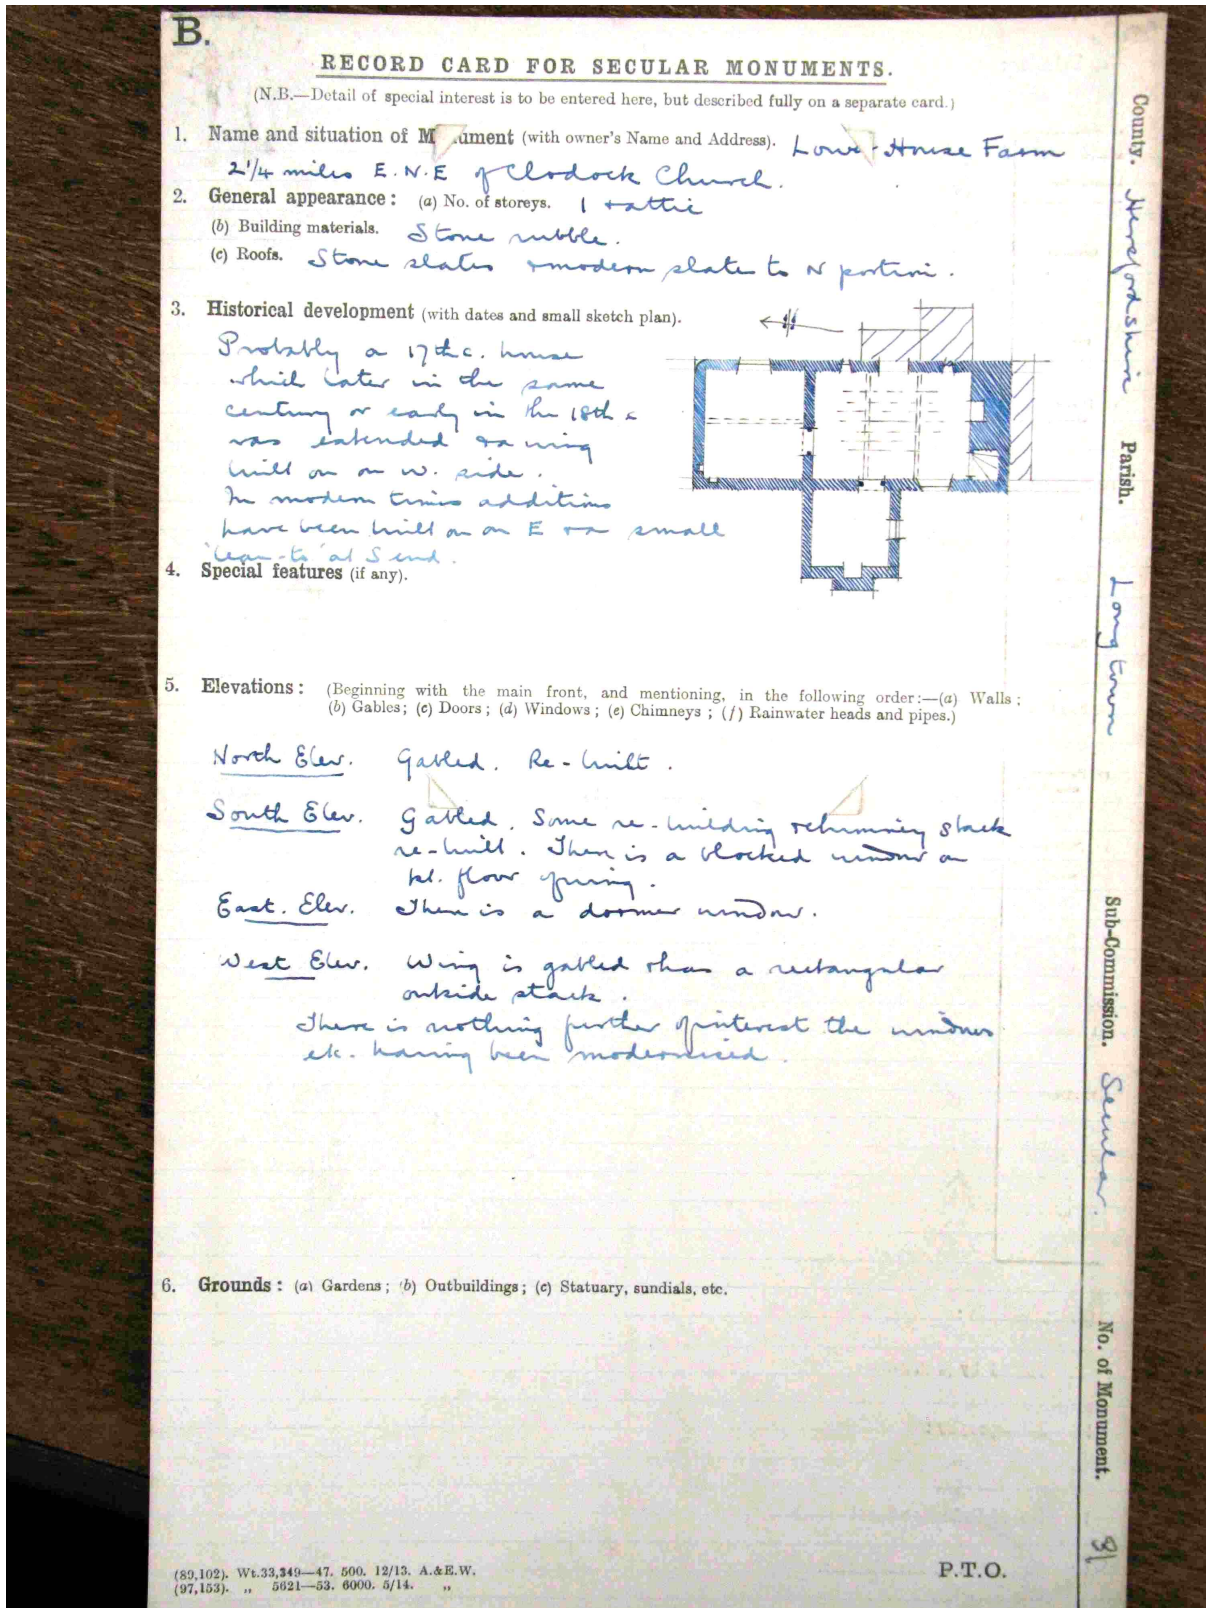 B.
RECORD CARD FOR SECULAR MONUMENTS.
(N.B.—Detail of special interest is to be entered here, but described fully on a separate card.)
1. Name and situation of M ument (with owner's Name and Address). Lower House Farm
2 1/4 miles E.N.E of Clodock Church.
2. General appearance: (a) No. of storeys. 1 + attic
(b) Building materials. Stone rubble.
(c) Roofs. Stone slates & modern slate to N portion.
3. Historical development (with dates and small sketch plan).
Probably a 17th c. house
which later in the same
century or early in the 18th c
was extended & a wing
built on on W. side.
In modern times additions
have been built on on E & a small
'lean-to' at S end.
4. Special features (if any).
5. Elevations: (Beginning with the main front, and mentioning, in the following order:—(a) Walls;
(b) Gables; (c) Doors; (d) Windows; (e) Chimneys; (f) Rainwater heads and pipes.)
North Elev. Gabled. Re-built.
South Elev. Gabled. Some re-building & chimney stack
re-built. There is a blocked window on
floor of wing.
East. Elev. There is a dormer window.
West Elev. Wing is gabled & has a rectangular
outside stack.
There is nothing further of interest the windows
etc. having been modernised.
6. Grounds: (a) Gardens; (b) Outbuildings; (c) Statuary, sundials, etc.
(89,102). Wt.33,349—47. 500. 12/13. A.&E.W.
(97,153). „ 5621—53. 6000. 5/14. „
P.T.O.
County. Herefordshire
Parish. Longtown
Sub-Commission. Secular.
No. of Monument. 31